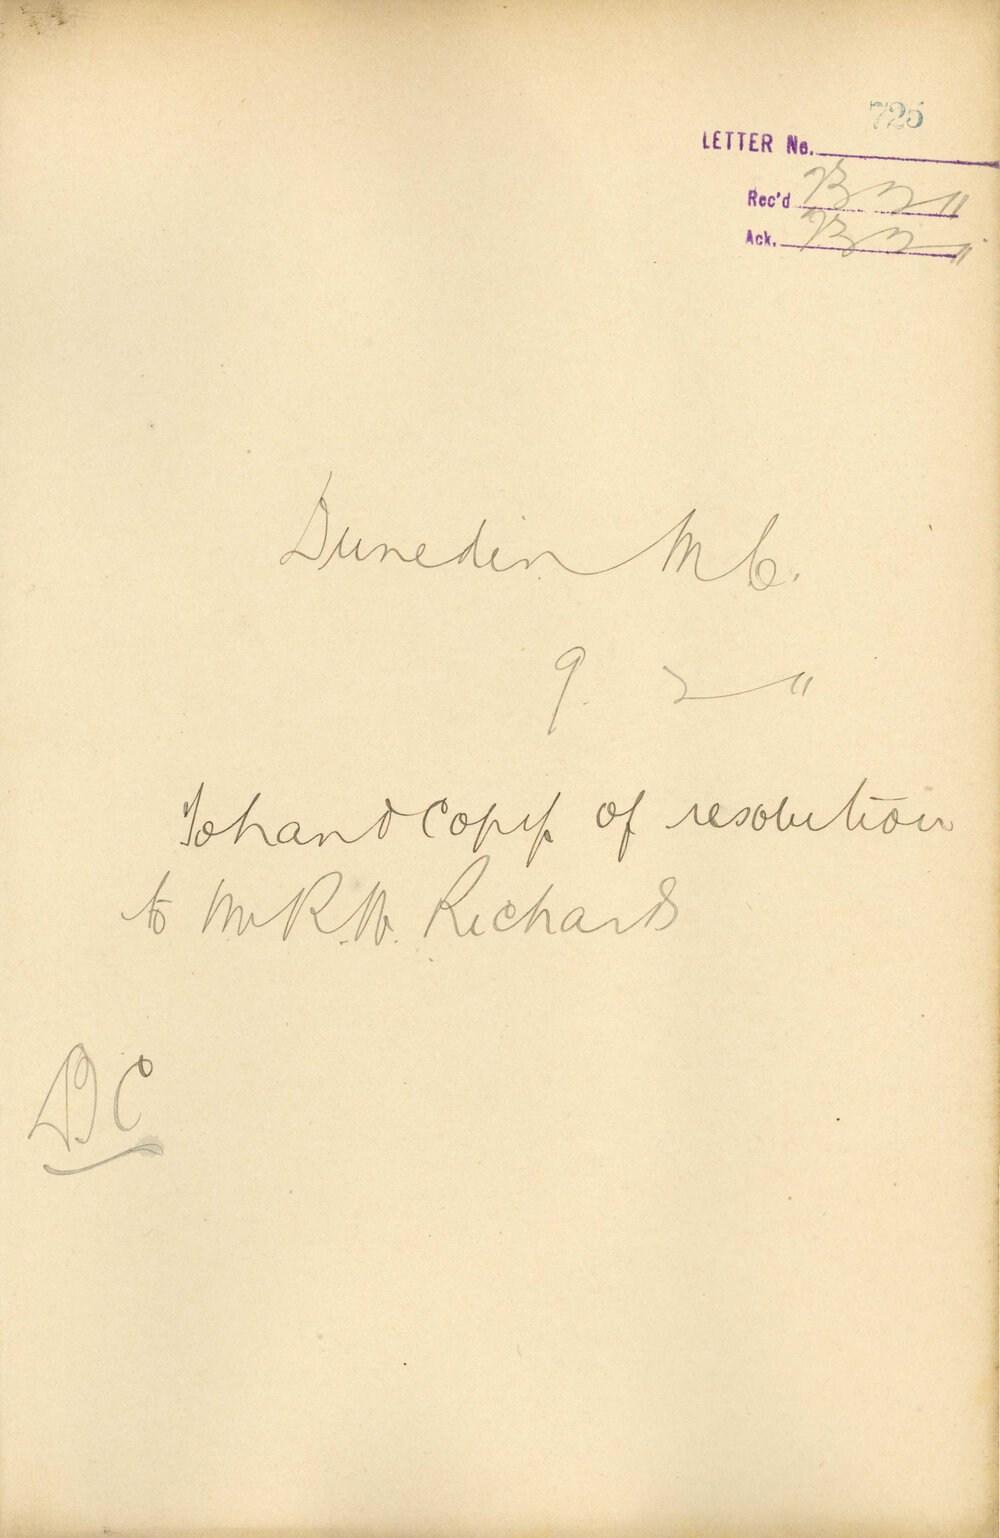 725
LETTER No.
Rec'd 13 2 11
Ack. 13 2 11
Dunedin M C.
9. 2 11
To hand Copy of resolution
to Mr R. W. Richards
DC